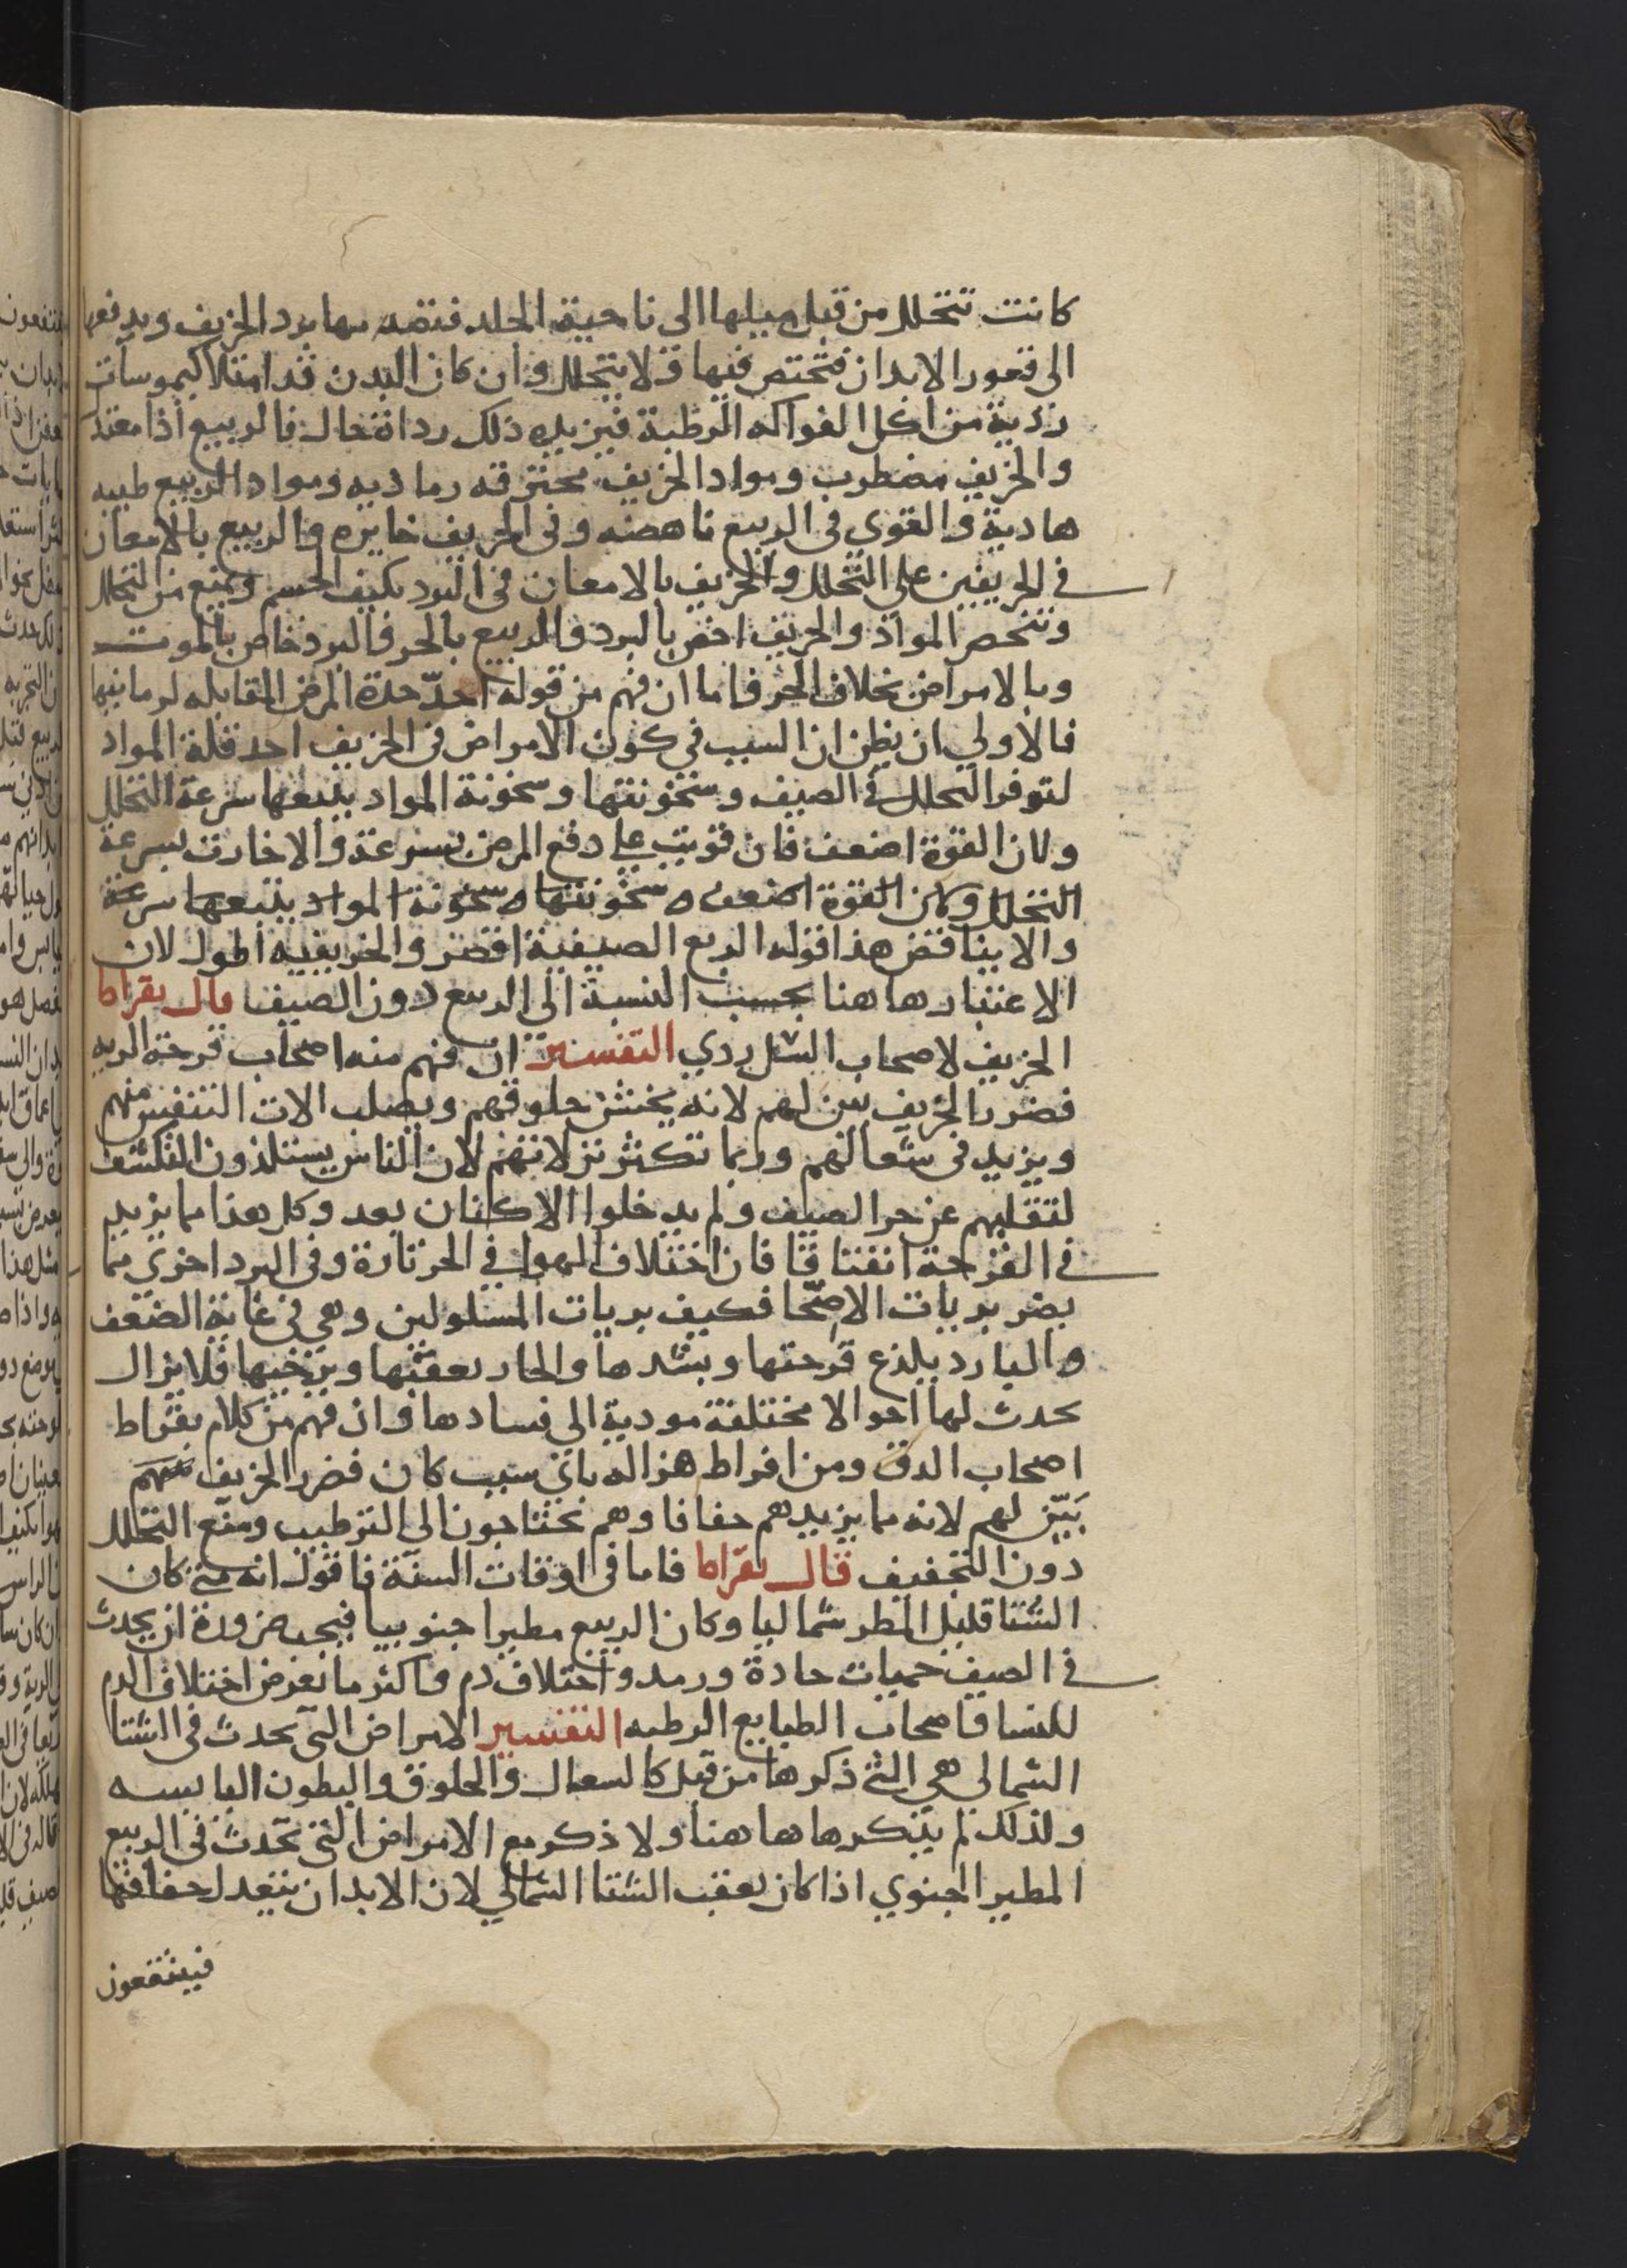 كانت تتحلل من قبل ميلها الى ناحية الجلد فتصد بها برد الخريف ويدفعها
الى قعور الابدان فتختص فيها ولا يتحلل وان كان البدن قد امتلا كيموسات
ردية من اكل الفواكه الرطبة فيزيده ذلك رداة حال فالربيع اذا معتدل
والخريف مضطرب ومواد الخريف محترقه رماديه ومواد الربيع طيبه
هادية والقوي في الربيع ناهضه وفي الخريف خايره والربيع بالامعان
في الحر يعين علي التحلل والخريف بالامعان في البرد يكثف الجسم ويمنع من التحلل
وتنحصر المواد والخريف اخص بالبرد والربيع بالحر والبرد خاص بالموت
وبالامراض بخلاف الحر فاما ان فهم من قوله احدّ حدة المرض المقابله لزمانها
فالاولي ان يظن ان السبب في كون الامراض في الخريف احد قلة المواد
لتوفر التحلل في الصيف وسخونتها وسخونة المواد يتبعها سرعة التحلل
ولان القوة اضعف فان قويت علي دفع المرض بسرعة والا خارت بسرعة
التحلل ولان القوة اضعف وسخونتها وسخونة المواد يتبعها سرعة
والا يناقض هذا قوله الربع الصيفية اقصر والخريفيه اطول لان
الاعتبار هاهنا بحسب النسبة الى الربيع دون الصيف قال بقراط
الخريف لاصحاب السل ردي التفسير ان فهم منه اصحاب قرحة الريه
فضرر الخريف بين لهم لانه يخشن حلوقهم ويصلب الات التنفس منهم
ويزيد في سعالهم وربما تكثر نزلاتهم لان الناس يستلذون التكشف
لتقلبهم عن حر الصيف ولم يدخلوا الاكنان بعد وكل هذا مما يزيد
في القرحة انفتاقا فان اختلاف الهوا في الحر تارة وفي البرد اخري مما
يضر بريات الاصحّا فكيف بريات المسلولين وهي في غاية الضعف
والبارد يلذع قرحتها ويشدها والحار يعفنها ويرخيها فلا يزال
يحدث لها احوالا مختلفة مودية الي فسادها وان فهم من كلام بقراط
اصحاب الدق ومن افراط هزاله باي سبب كان فضرر الخريف
بَيّن لهم لانه مما يزيدهم جفافا وهم يحتاجون الي الترطيب ومنع التحلل
دون التجفيف قال بقراط فاما في اوقات السنة فاقول انه متي كان
الشتا قليل المطر شماليا وكان الربيع مطيرا جنوبيا فيجب ضرورة ان يحدث
في الصيف حميات حادة ورمد واختلاف دم واكثر ما يعرض اختلاف الدم
للنسا واصحاب الطبايع الرطبه التفسير الامراض التي تحدث في الشتا
الشمالي هي التي ذكرها من قبل كالسعال والحلوق والبطون اليابسه
ولذلك لم يذكرها هاهنا ولا ذكر مع الامراض التي تحدث في الربيع
المطير الجنوبي اذا كان يعقب الشتا الشمالي لان الابدان يتعدل جفافها
فينتفعون